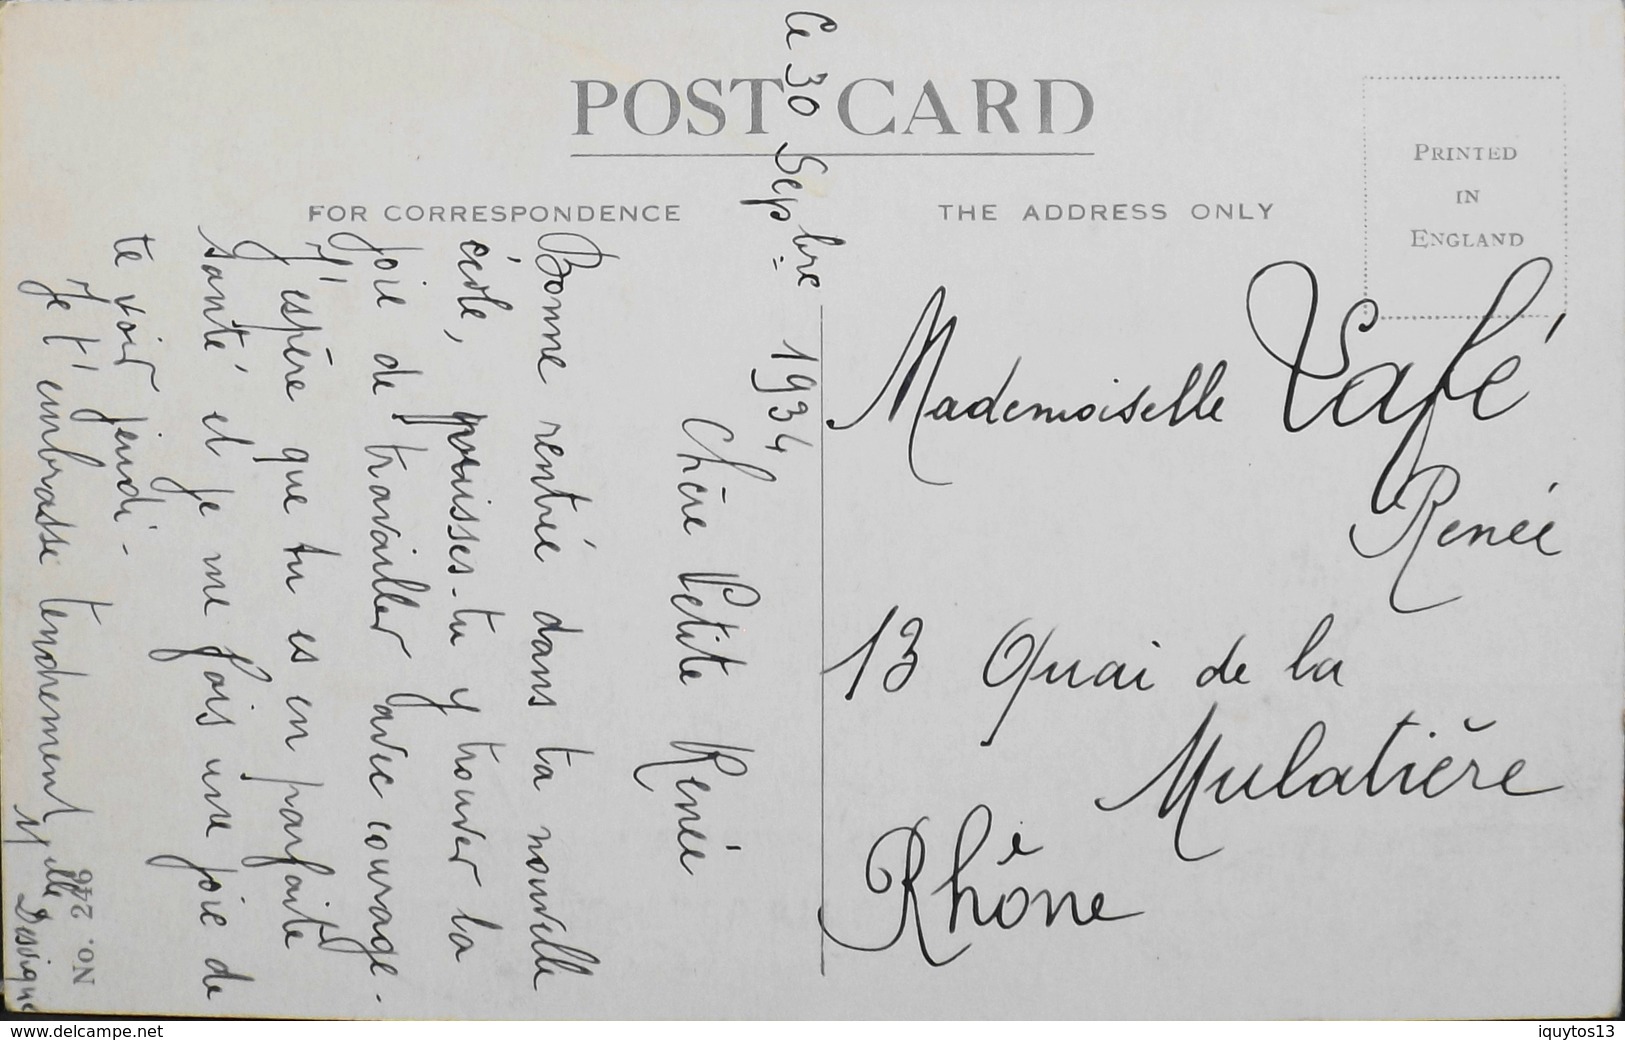 POST CARD
FOR CORRESPONDENCE
THE ADDRESS ONLY
PRINTED
IN
ENGLAND
Ce 30 Sepbre 1934
Chère Petite Renée
Bonne rentrée dans ta nouvelle
école, puisses-tu y trouver la
joie de travailler avec courage.
J'espère que tu es en parfaite
santé et je me fais une joie de
te voir jeudi.
Je t'embrasse tendrement
Melle Dessigne
No. 246
Mademoiselle
Renée
13 Quai de la
Mulatière
Rhône
www.delcampe.net
iquytos13